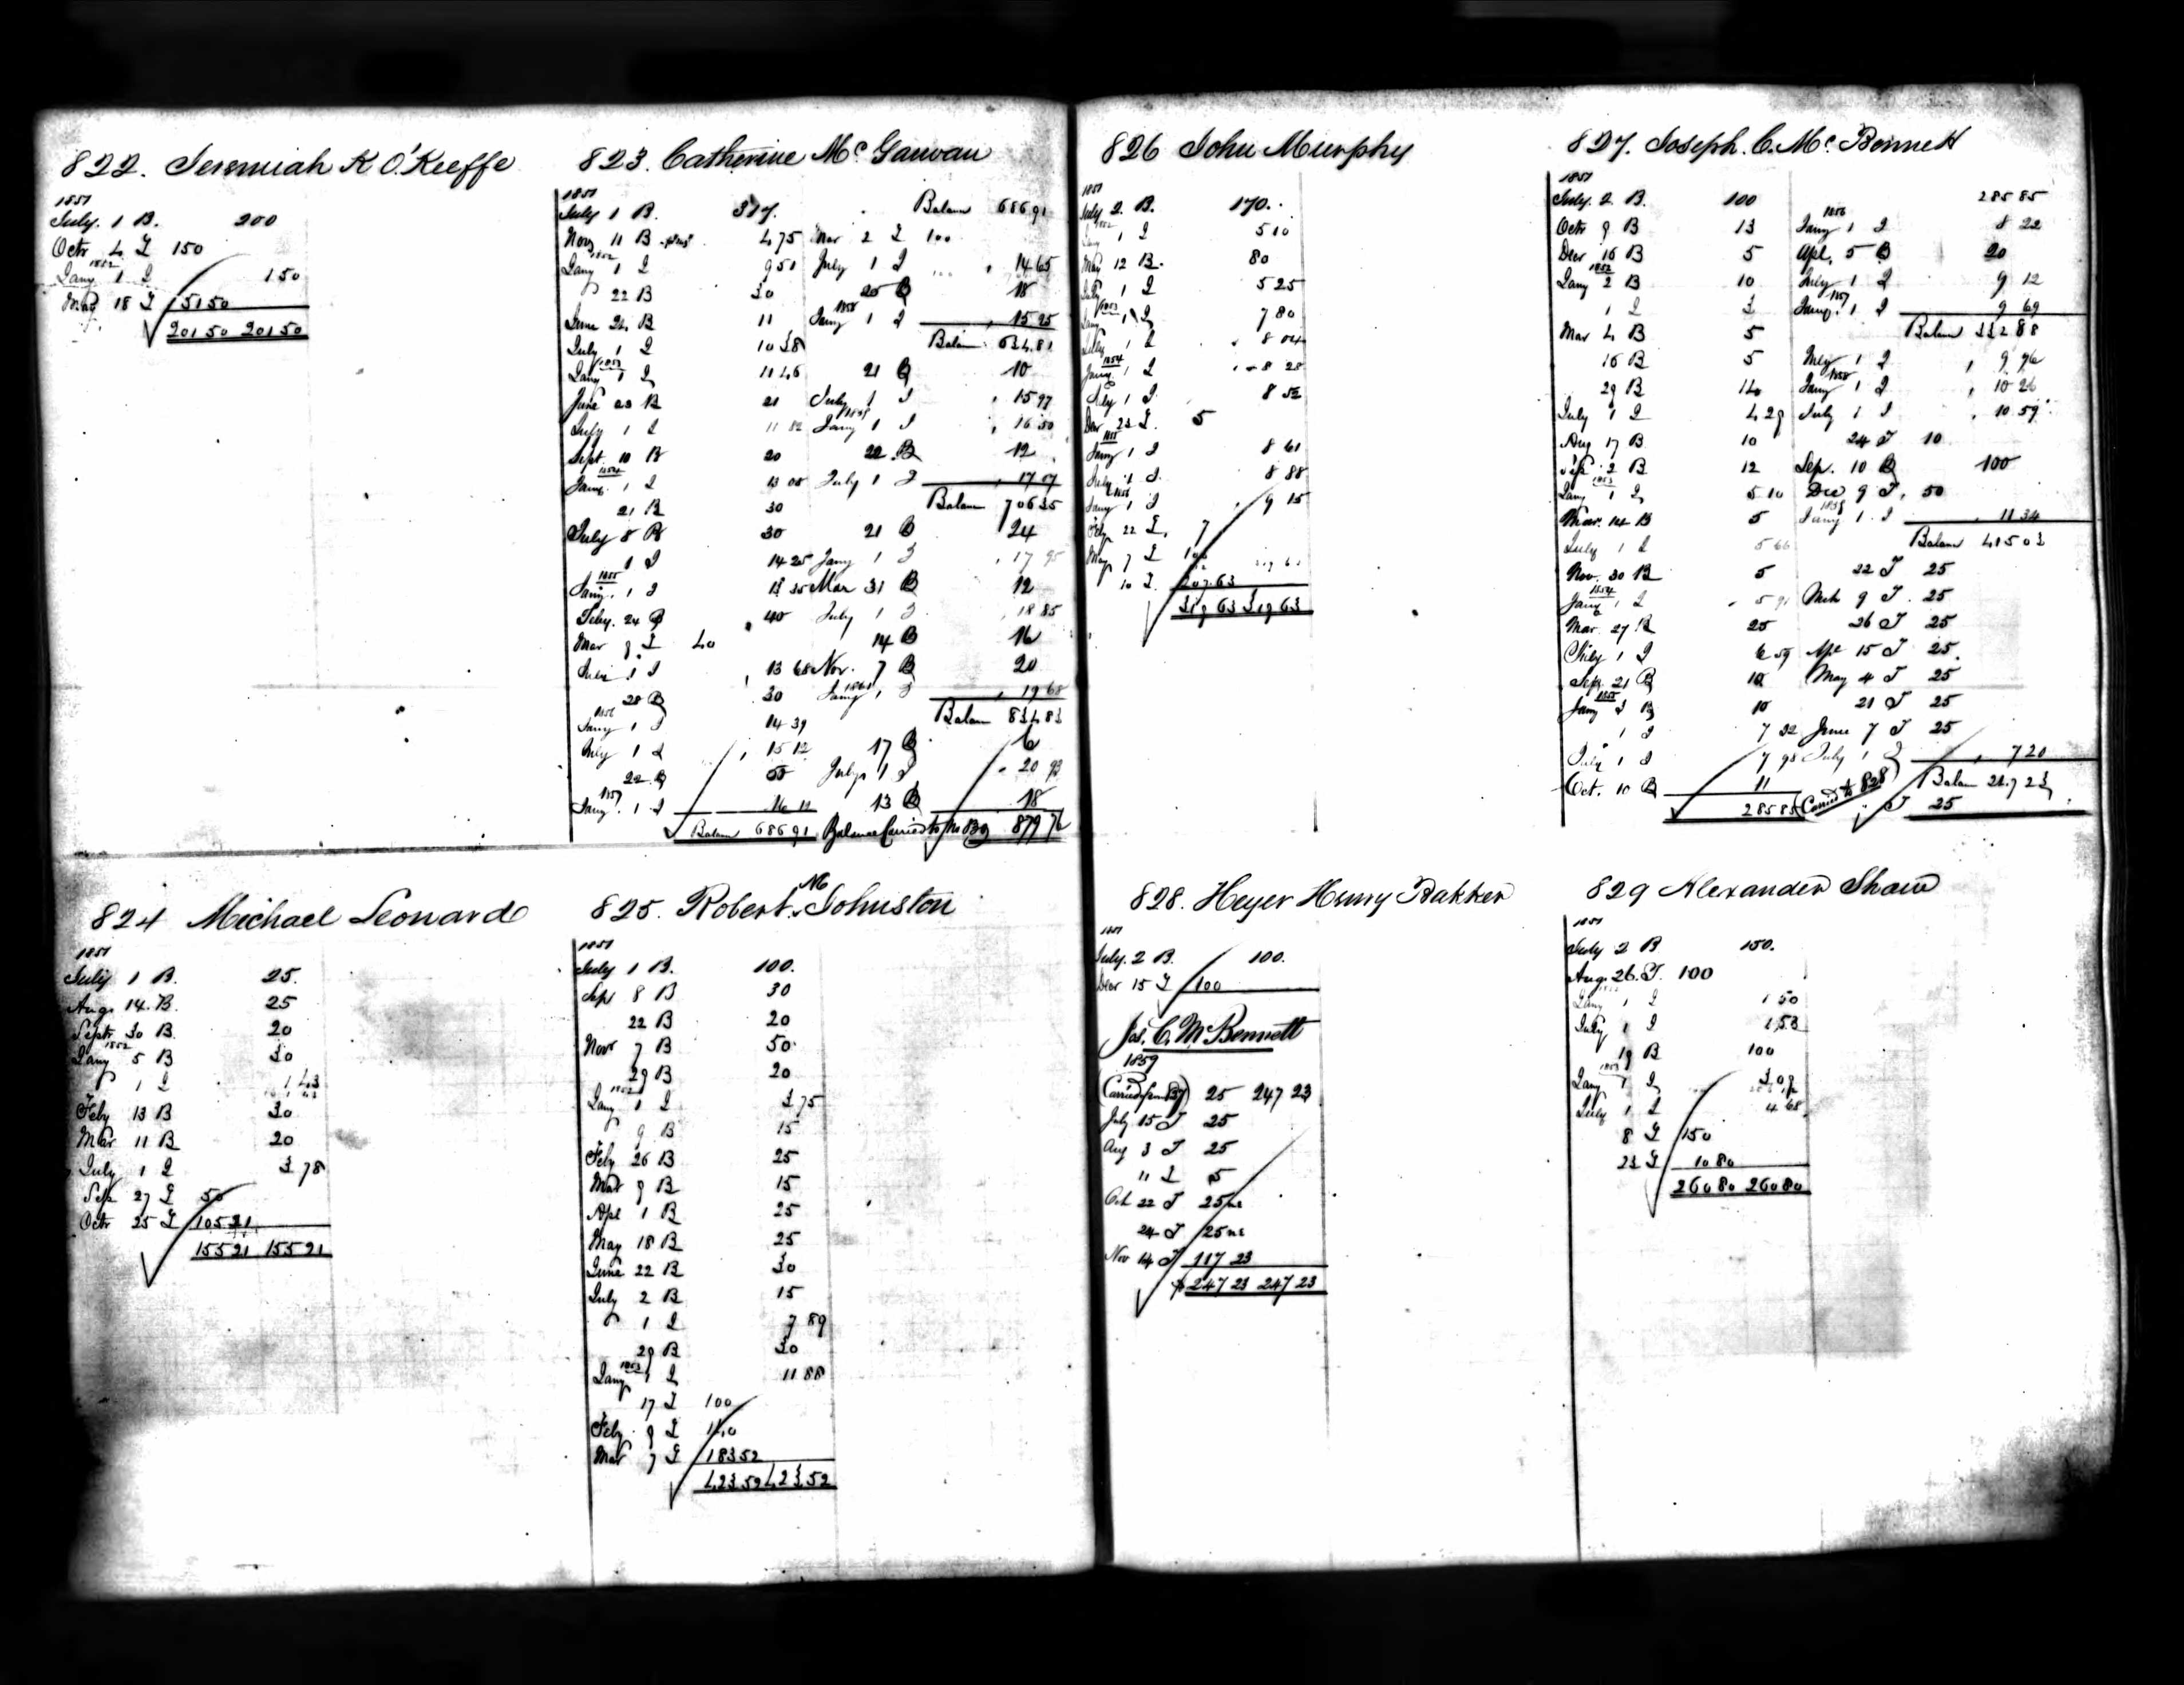 822. Jeremiah K O'Keeffe
1851
July. 1 B. 200
Octr 4 I 150
1852
Jany 1 I 1 50
May 18 I 51 50
201 50 201 50
823. Catherine Mc Garvan
1851
July 1 B. 317.
Novr 11 B 4 75
1852
Jany 1 I 9 51
22 B 30
June 24 B 11
July 1 I 10 38
1853
Jany 1 I 11 46
June 20 B 21
July 1 I 11 82
Sept. 10 B 20
1854
Jany. 1 I 13 05
21 B 30
July 8 B 30
1 I 14 25
1855
Jany. 1 I 15 35
Feby. 24 B 40
Mar 9 I 40
July 1 I 13 68
28 B 30
1856
Jany 1 I 14 39
July 1 I 15 12
22 B 50
1857
Jany. 1 I 16 11
Balam 686 91
Balam 686 91
Mar 2 I 100
July 1 I 14 65
25 B 18
1858
Jany 1 I 15 25
Balam 634.81
21 B 10
July 1 I 15 97
1859
Jany 1 I 16 50
22 B 12
July 1 I 17 07
Balam 706 35
21 B 24
Jany 1 I 17 95
Mar 31 B 12
July 1 I 18 85
14 B 16
Nov. 7 B 20
Jany 1 I 19 68
Balam 834 83
17 B 6
July 1 I 20 93
13 B 18
Balance Carried to No 879 76
824 Michael Leonard
1851
July 1 B. 25.
Aug. 14. B. 25
Septr 30 B. 20
1852
Jany 5 B 30
1 I 1 43
Feby 13 B 30
Mar 11 B 20
July 1 I 3 78
Sep 27 I 50
Octr 25 I 105 21
155 21 155 21
825. Robert Mc Johnston
1851
July 1 B. 100.
Sep 8 B 30
22 B 20
Novr 7 B 50
29 B 20
1852
Jany 1 I 3 75
9 B 15
Feby 26 B 25
Mar 9 B 15
Apl 1 B 25
May 18 B 25
June 22 B 30
July 2 B 15
1 I 7 89
29 B 30
1853
Jany 1 I 11 88
17 I 100
Feby. 9 I 140
Mar 7 I 183 52
423.52 423.52
826 John Murphy
1851
July 2. B. 170.
1852
1 I 5 10
May 12 B. 80
July 1 I 5 25
1853
Jany 1 I 7 80
July 1 I 8 04
1854
Jany. 1 I 8 28
July 1 I 8 52
Decr 23 I. 5
1855
Jany 1 I 8 61
July 1 I. 8 88
1856
Jany 1 I 9 15
Feby 22 I. 7
May 7 I 100
10 I. 207.63
319 63 319 63
827. Joseph. C. Mc Bennett
1851
July. 2 B. 100
Octr 9 B 13
Decr 16 B 5
1852
Jany 2 B 10
1 I 3
Mar 4 B 5
16 B 5
29 B 14
July 1 I 4 29
Aug 17 B 10
Sep. 2 B 12
1853
Jany 1 I 5 10
Mar. 14 B 5
July 1 I 5 66
Nov. 30 B 5
1854
Jany 1 I 5 91
Mar. 27 B 25
July 1 I 6 59
Sep. 21 B 10
1855
Jany 3 B 10
1 I 7 22
July 1 I 7 95
Oct. 10 B 11
285 85
285 85
1856
Jany 1 I 8 22
Apl. 5 B 20
July 1 I 9 12
1857
Jany. 1 I 9 69
Balam 332 88
July 1 I 9 96
1858
Jany 1 I 10 26
July 1 I 10 59
24 I 10
Sep. 10 B 100
Dec 9 I. 50
1859
Jany 1. I 11 34
Balam 415 03
22 I 25
Mch 9 I. 25
26 I 25
Apl 15 I 25
May 4 I 25
21 I 25
June 7 I 25
July 1 I 7 20
Balam 247 23
(Carried to 828) I 25
828. Heyer Henry Bakker
1851
July. 2 B. 100.
Decr 15 I 100
Jas. C. Mc Bennett
1859
(Carried from 827) 25 247 23
July 15 I 25
Aug 3 I 25
11 I 5
Oct 22 I 25
24 I 25
Nov 14 I 117 23
$247 23 247 23
829 Alexander Shaw
1851
July 2 B 150.
Aug. 26. I. 100
Jany 1 I 1 50
July 1 I 1 53
19 B 100
1853
Jany 1 I 3 09
July 1 I 4 68
8 I 150
23 I 10 80
260 80 260 80